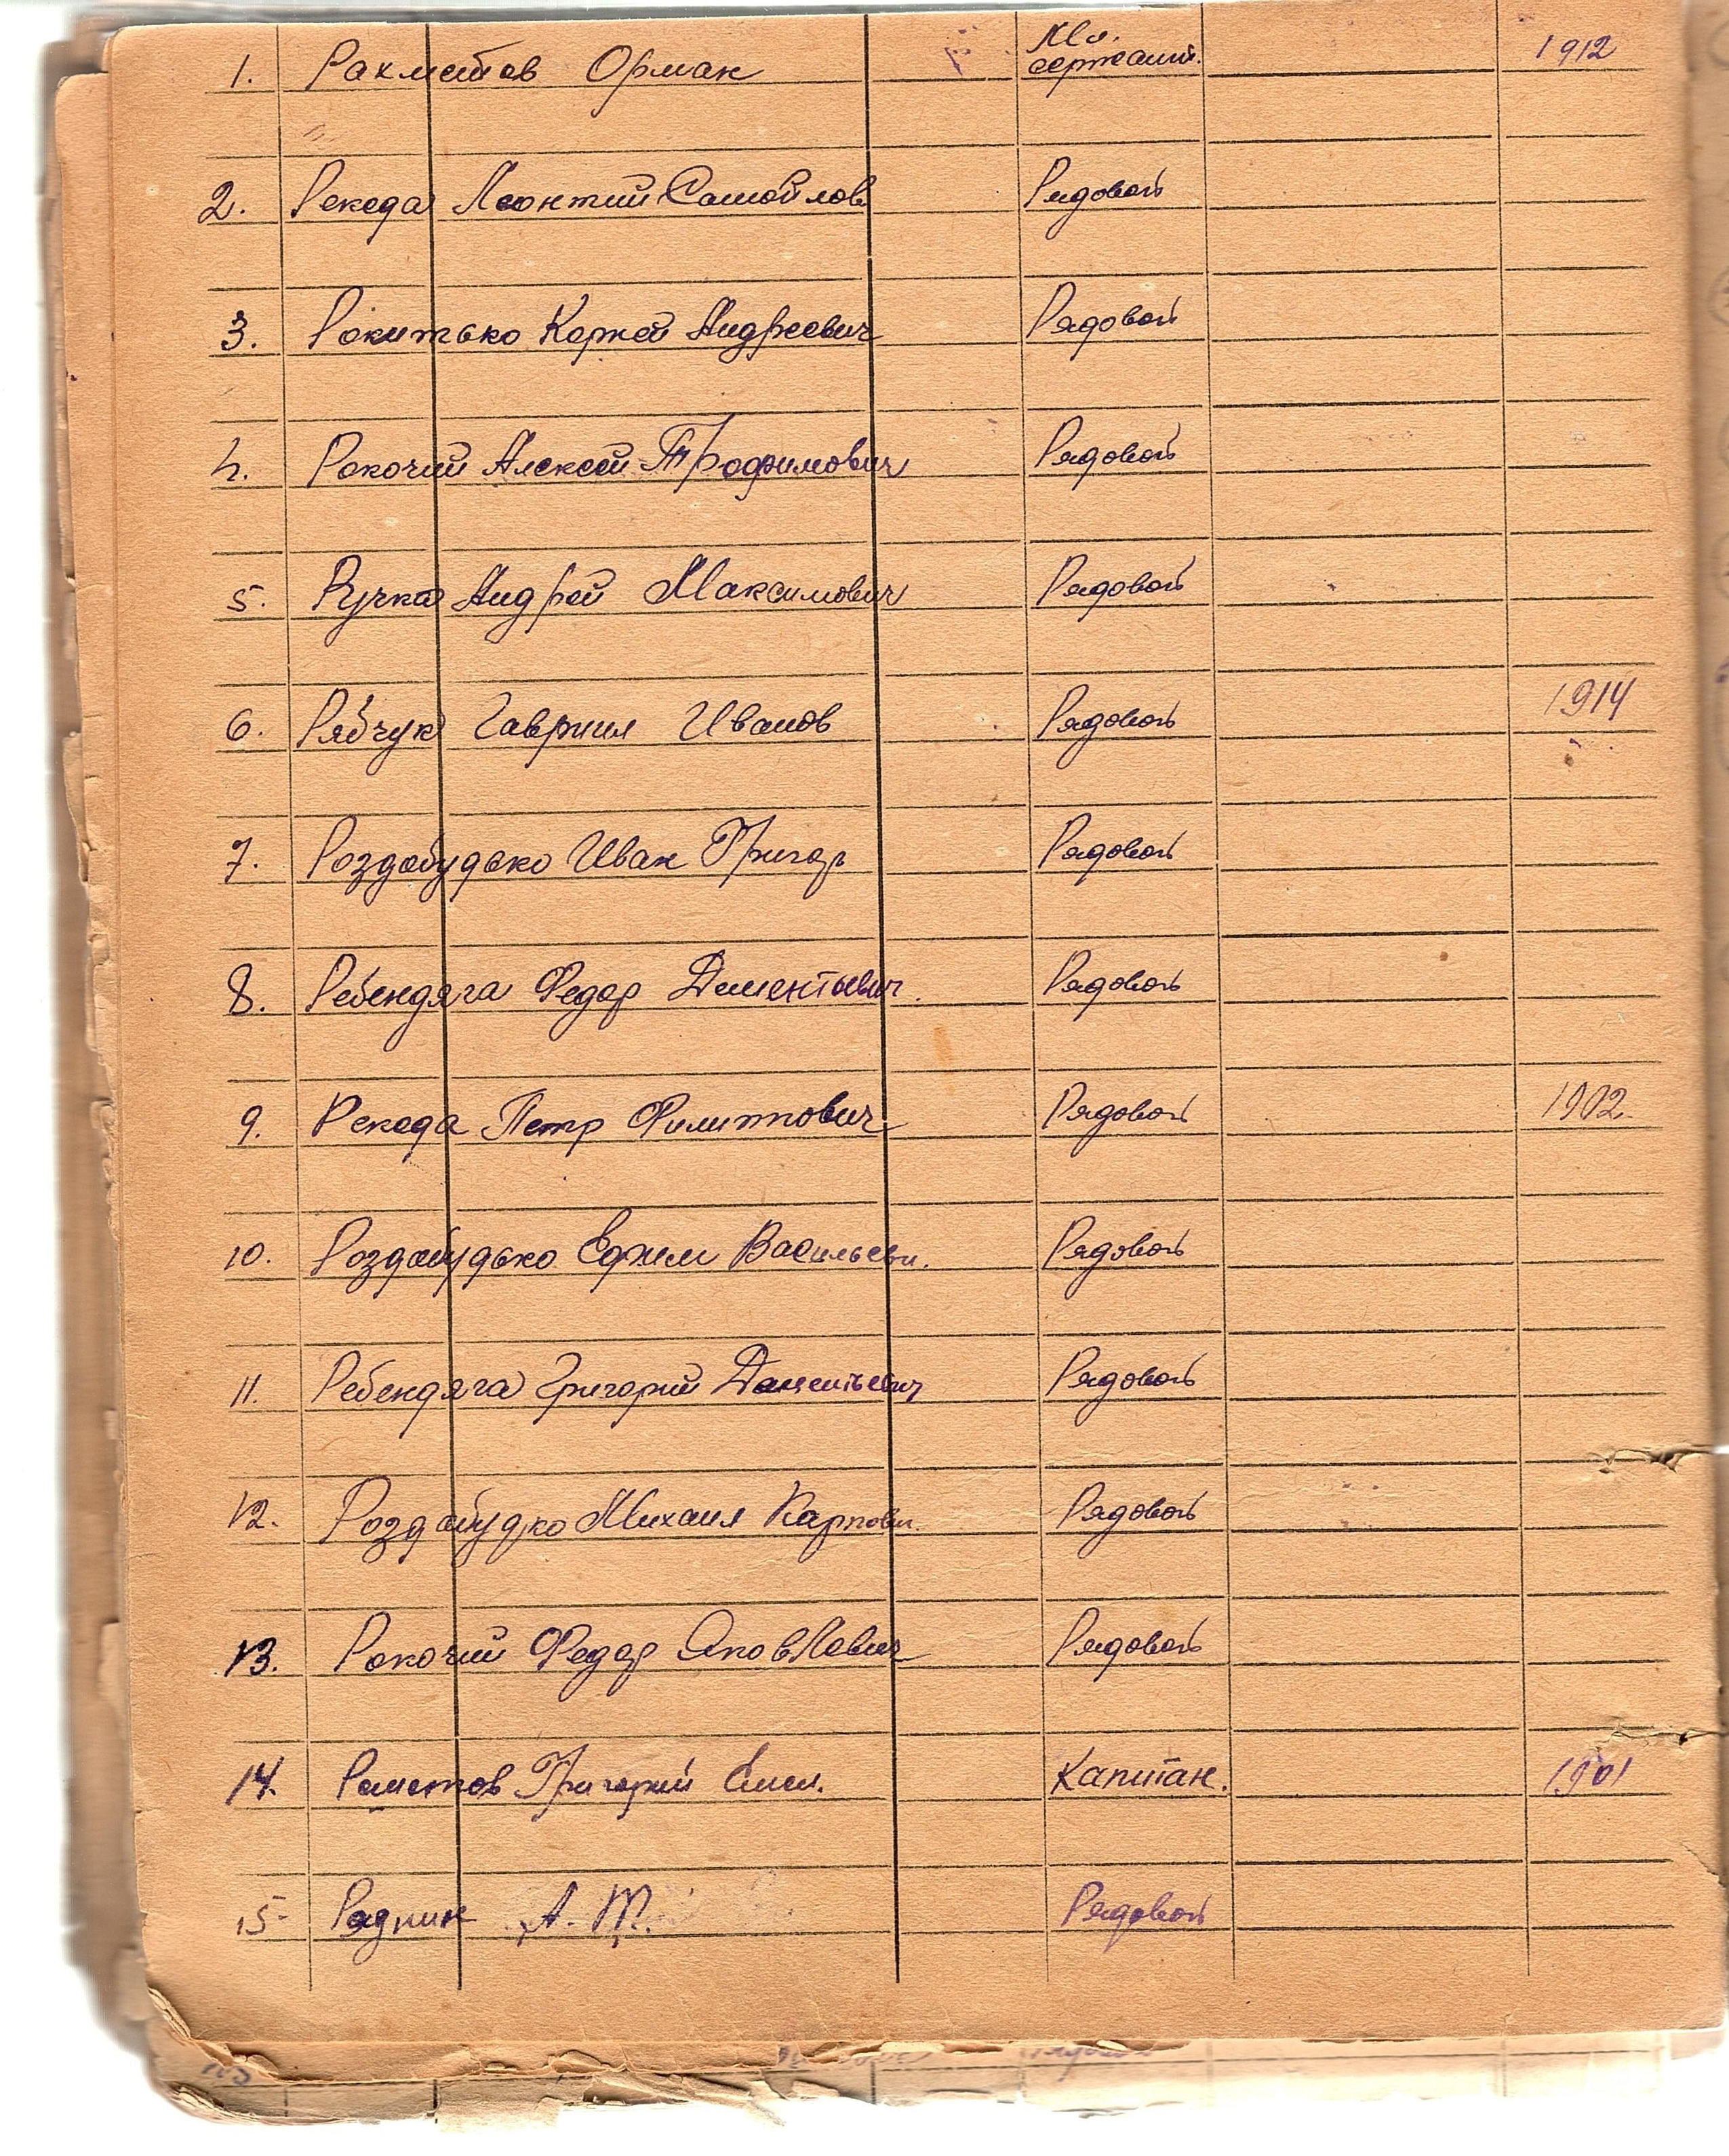 1. Рахметов Орман Мл. сержант. 1912
2. Рекеда Леонтий Самойлов Рядовой
3. Рокитько Корней Андреевич Рядовой
4. Рокочий Алексей Трофимович Рядовой
5. Ручка Андрей Максимович Рядовой
6. Рябчук Гавриил Иванов Рядовой 1914
7. Роздобудько Иван Григор Рядовой
8. Ребендяга Федор Дементьевич. Рядовой
9. Рекеда Петр Филиппович Рядовой 1902.
10. Роздобудько Ефим Васильеви. Рядовой
11. Ребендяга Григорий Дементьевич Рядовой
12. Роздобудко Михаил Карпови. Рядовой
13. Рокочий Федор Яковлевич Рядовой
14. Реметов Григорий Емел. Капитан. 1901
15 Радкин А. Т. Рядовой